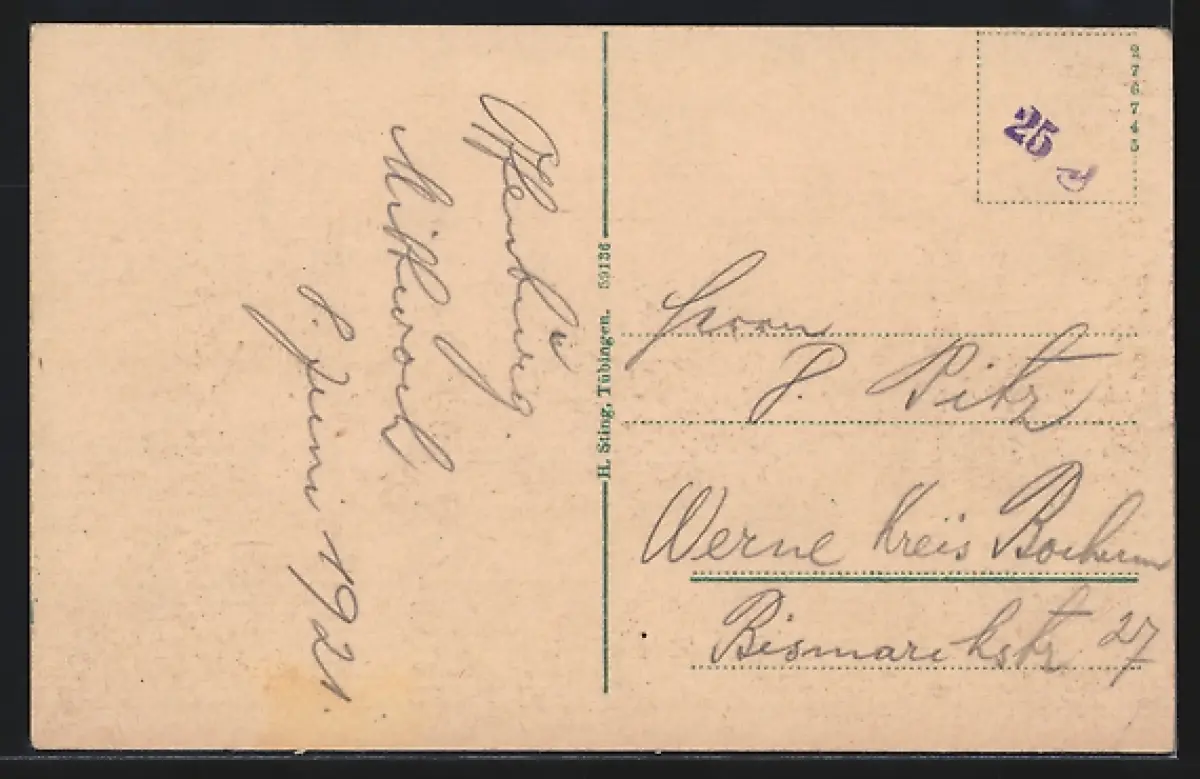 Offenburg.
Mittwoch
8. Juni 1921.
H. Sting, Tübingen. 59136
276745
25
Herrn
P. Pitz
Werne Kreis Bochum
Bismarckstr 27